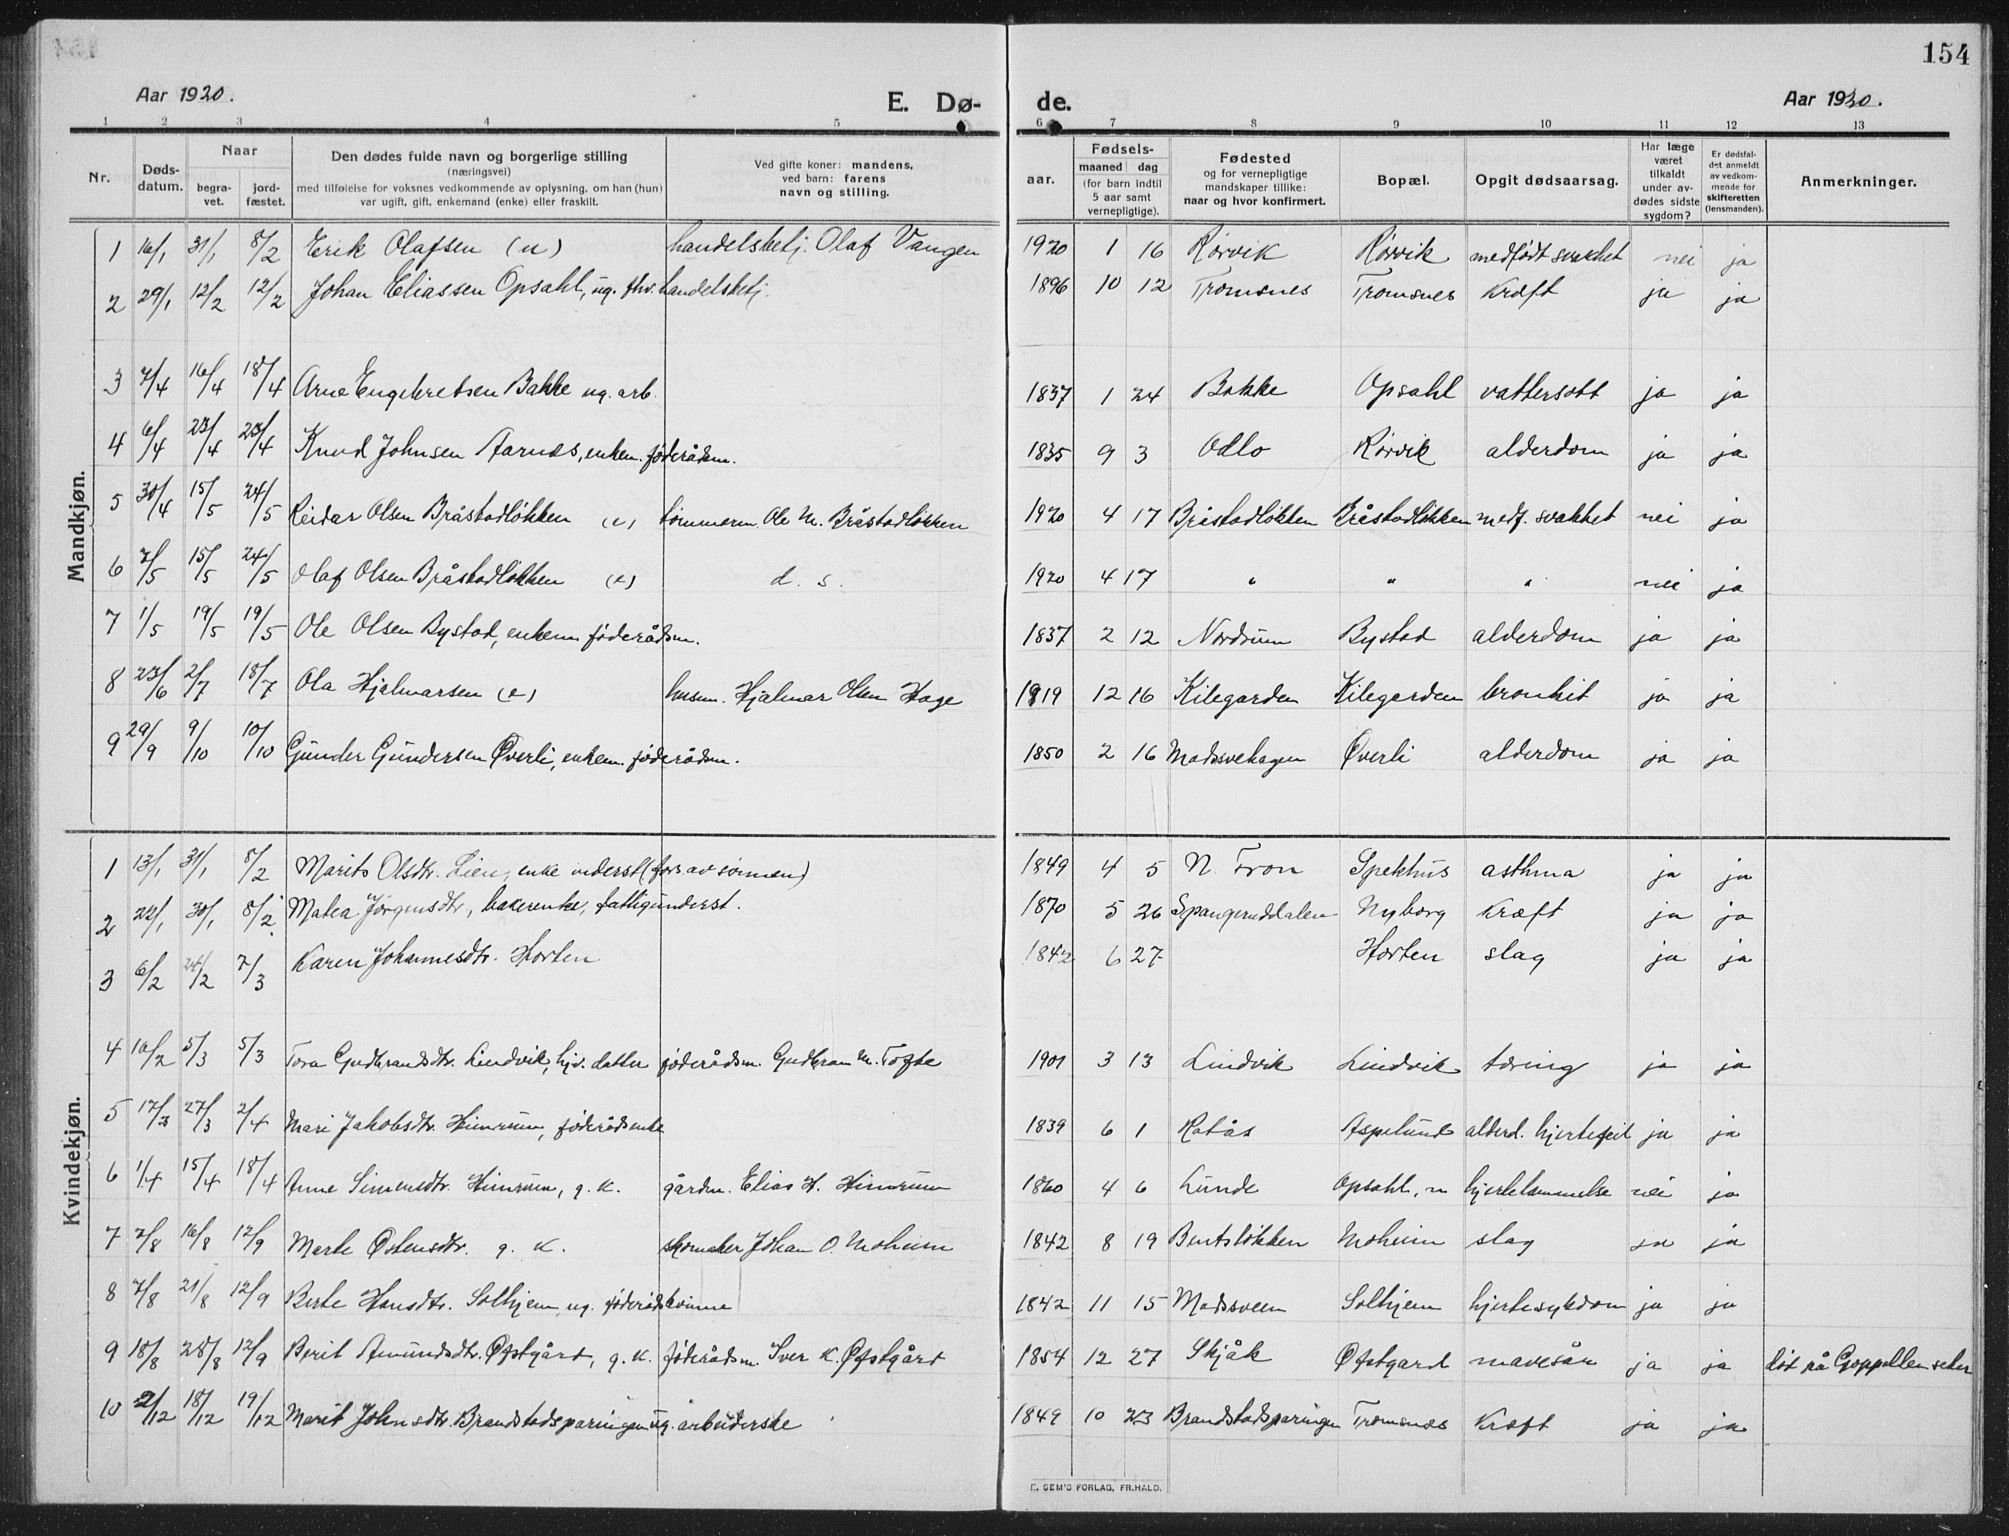 154
Aar 1920. E. Dø- de. Aar 1920.
1 2 3 4 5 6 7 8 9 10 11 12 13
Nr. Døds-datum. Naar begra-vet. jord-fæstet. Den dødes fulde navn og borgerlige stilling (næringsvei) med tilføielse for voksnes vedkommende av oplysning, om han (hun) var ugift, gift, enkemand (enke) eller fraskilt. Ved gifte koner: mandens, ved barn: farens navn og stilling. aar. Fødsels- maaned dag (for barn indtil 5 aar samt vernepligtige). Fødested og for vernepligtige mandskaper tillike: naar og hvor konfirmert. Bopæl. Opgit dødsaarsag. Har læge været tilkaldt under av-dødes sidste sygdom? Er dødsfal-det anmeldt av vedkom-mende for skifteretten (lensmanden). Anmerkninger.
Mandkjøn.
1 16/1 31/1 8/2 Erik Olafsen (u) handelsbetj. Olaf Vangen 1920 1 16 Rørvik Rørvik medfødt svakhet nei ja
2 29/1 12/2 12/2 Johan Eliassen Opsahl, ug. fhv. handelsbetj. 1896 10 12 Tromsnes Tromsnes Kræft ja ja
3 7/4 16/4 18/4 Arne Engebretsen Bakke ug. arb. 1837 1 24 Bakke Opsahl vattersott ja ja
4 6/4 23/4 23/4 Knud Johnsen Aarnes, enkem. føderådsm. 1835 9 3 Odlo Rørvik alderdom ja ja
5 30/4 15/5 24/5 Reidar Olsen Bråstadløkken (e) tømmerm. Ole M. Bråstadløkken 1920 4 17 Bråstadløkken Bråstadløkken medf. svakhet nei ja
6 7/5 15/5 24/5 Olaf Olsen Bråstadløkken (e) d. s. 1920 4 17 " " " nei ja
7 1/5 19/5 19/5 Ole Olsen Bystad, enkem føderådsm. 1837 2 12 Nordrum Bystad alderdom ja ja
8 23/6 2/7 18/7 Ola Hjalmarsen (e) husm. Hjalmar Olsen Hage 1919 12 16 Kilegarden Kilegarden bronkit ja ja
9 29/9 9/10 10/10 Gunder Gundersen Øverli, enkem. føderådsm. 1850 2 16 Madssvehagen Øverli alderdom ja ja
Kvindekjøn.
1 13/1 31/1 8/2 Marits Olsdtr. Lien, enke inderst (fors av sønnen) 1849 4 5 N. Fron Spekhus asthma ja ja
2 22/1 30/1 8/2 Matea Jørgensdtr, bakerenke, fattigunderst. 1870 5 26 Spangruddalen Nyborg Kræft ja ja
3 6/2 24/2 7/3 Karen Johannesdtr. Horten 1842 6 27 Horten slag ja ja
4 16/2 5/3 5/3 Tora Gudbrandsdtr. Lindvik, hjv. datter føderådsm. Gudbran M. Tofte 1901 3 13 Lindvik Lindvik tæring ja ja
5 17/3 27/3 2/4 Mari Jakobsdtr. Himrum, føderådsenke 1839 6 1 Kabås Aspelund alderd. hjertefeil ja ja
6 1/4 15/4 18/4 Anne Simensdtr. Himrum, g. k. gårdm. Elias H. Himrum 1860 4 6 Lunde Opsahl, n hjertelammelse nei ja
7 7/8 16/8 12/9 Marte Østensdtr. g. k. skomaker Johan O. Moheim 1842 8 19 Bentsløkken Moheim slag ja ja
8 7/8 21/8 12/9 Berte Hansdtr. Solhjem, ug. føderådskvinne 1842 11 15 Madssveen Solhjem hjertesykdom ja ja
9 18/8 28/8 12/9 Berit Amundsdtr. Øfstgård, g. k. føderådsm. Iver K. Øfstgård 1854 12 27 Skjåk Øfstgard mavesår ja ja død på Goppollen seter
10 2/12 18/12 19/12 Marit Johnsdtr. Brandstadsparingen ug. arbeiderske 1849 10 23 Brandstadsparingen Tromsnes Kræft ja ja
E. SEM'S FORLAG, FR.HALD.